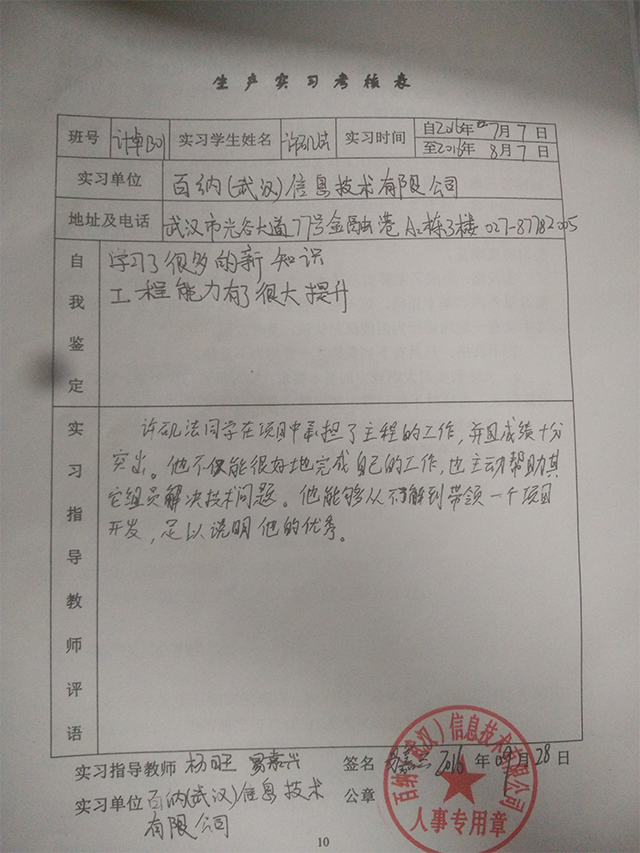 生产实习考核表
班号 计卓1301 实习学生姓名 许矾法 实习时间 自2016年7月7日
至2016年8月7日
实习单位 百纳(武汉)信息技术有限公司
地址及电话 武汉市光谷大道77号金融港A2栋3楼 027-87782005
自我鉴定
学习了很多的新知识
工程能力有了很大提升
实习指导教师评语
许矾法同学在项目中承担了主程的工作,并且成绩十分
突出。他不仅能很好地完成自己的工作,也主动帮助其
它组员解决技术问题。他能够从不了解到带领一个项目
开发,足以说明他的优秀。
实习指导教师 杨旺 签名 2016年09月28日
实习单位 百纳(武汉)信息技术 公章
有限公司
百纳(武汉)信息技术有限公司
人事专用章
10